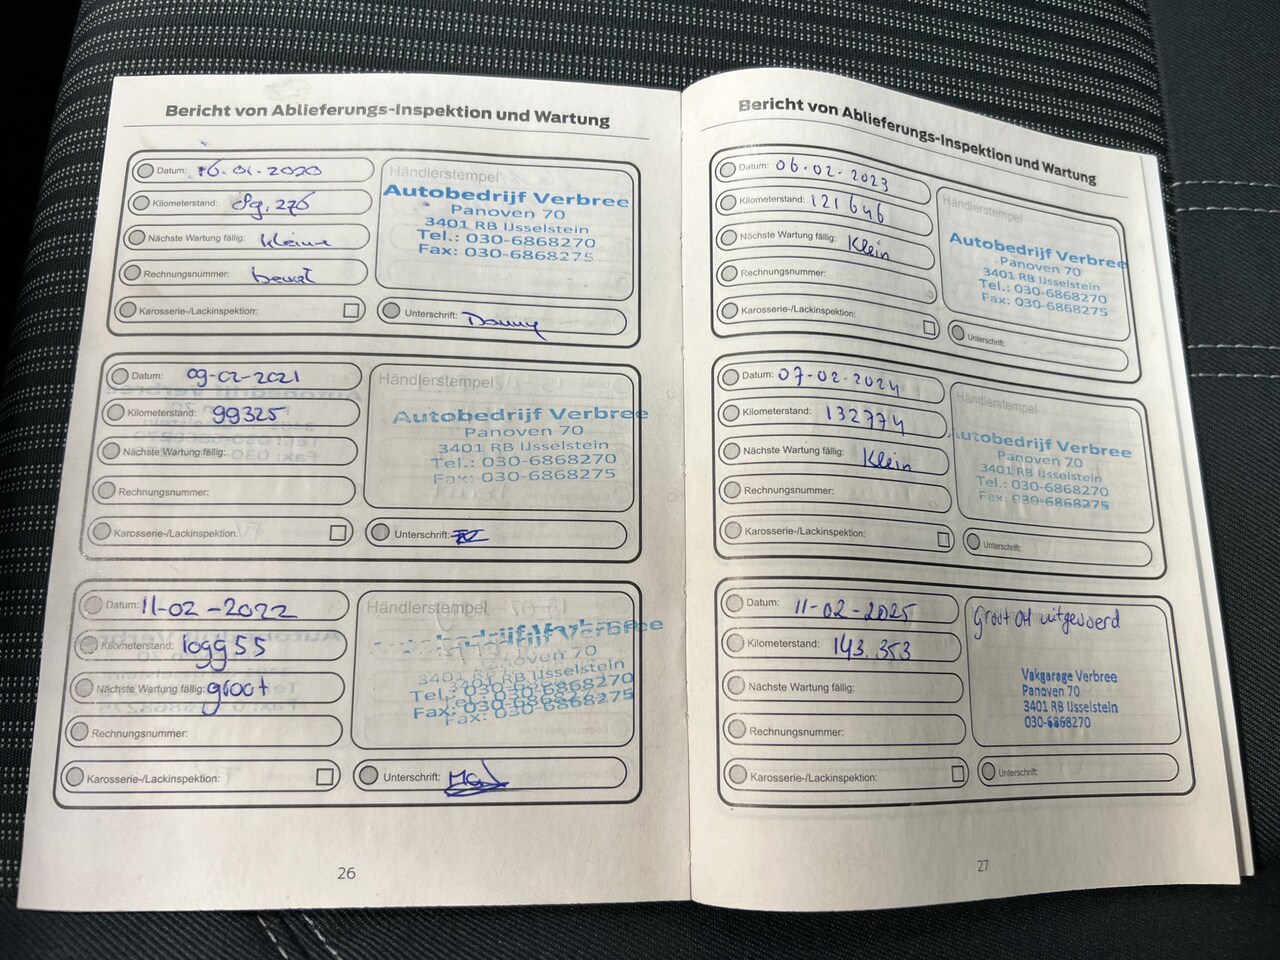 Bericht von Ablieferungs-Inspektion und Wartung
Datum: 16.01.2020
Kilometerstand: 89.276
Nächste Wartung fällig: kleine
Rechnungsnummer: beurt
Karosserie-/Lackinspektion:
Händlerstempel
Autobedrijf Verbree
Panoven 70
3401 RB IJsselstein
Tel.: 030-6868270
Fax: 030-6868275
Unterschrift: Danny
Datum: 09-02-2021
Kilometerstand: 99325
Nächste Wartung fällig:
Rechnungsnummer:
Karosserie-/Lackinspektion:
Händlerstempel
Autobedrijf Verbree
Panoven 70
3401 RB IJsselstein
Tel.: 030-6868270
Fax: 030-6868275
Unterschrift:
Datum: 11-02-2022
Kilometerstand: 109955
Nächste Wartung fällig: groot
Rechnungsnummer:
Karosserie-/Lackinspektion:
Händlerstempel
Autobedrijf Verbree
Panoven 70
3401 RB IJsselstein
Tel.: 030-6868270
Fax: 030-6868275
Unterschrift:
26
Bericht von Ablieferungs-Inspektion und Wartung
Datum: 06.02.2023
Kilometerstand: 121646
Nächste Wartung fällig: Klein
Rechnungsnummer:
Karosserie-/Lackinspektion:
Händlerstempel
Autobedrijf Verbree
Panoven 70
3401 RB IJsselstein
Tel.: 030-6868270
Fax: 030-6868275
Unterschrift:
Datum: 07-02-2024
Kilometerstand: 132774
Nächste Wartung fällig: Klein
Rechnungsnummer:
Karosserie-/Lackinspektion:
Händlerstempel
Autobedrijf Verbree
Panoven 70
3401 RB IJsselstein
Tel.: 030-6868270
Fax: 030-6868275
Unterschrift:
Datum: 11-02-2025
Kilometerstand: 143.353
Nächste Wartung fällig:
Rechnungsnummer:
Karosserie-/Lackinspektion:
Groot OH uitgevoerd
Vakgarage Verbree
Panoven 70
3401 RB IJsselstein
030-6868270
Unterschrift:
27